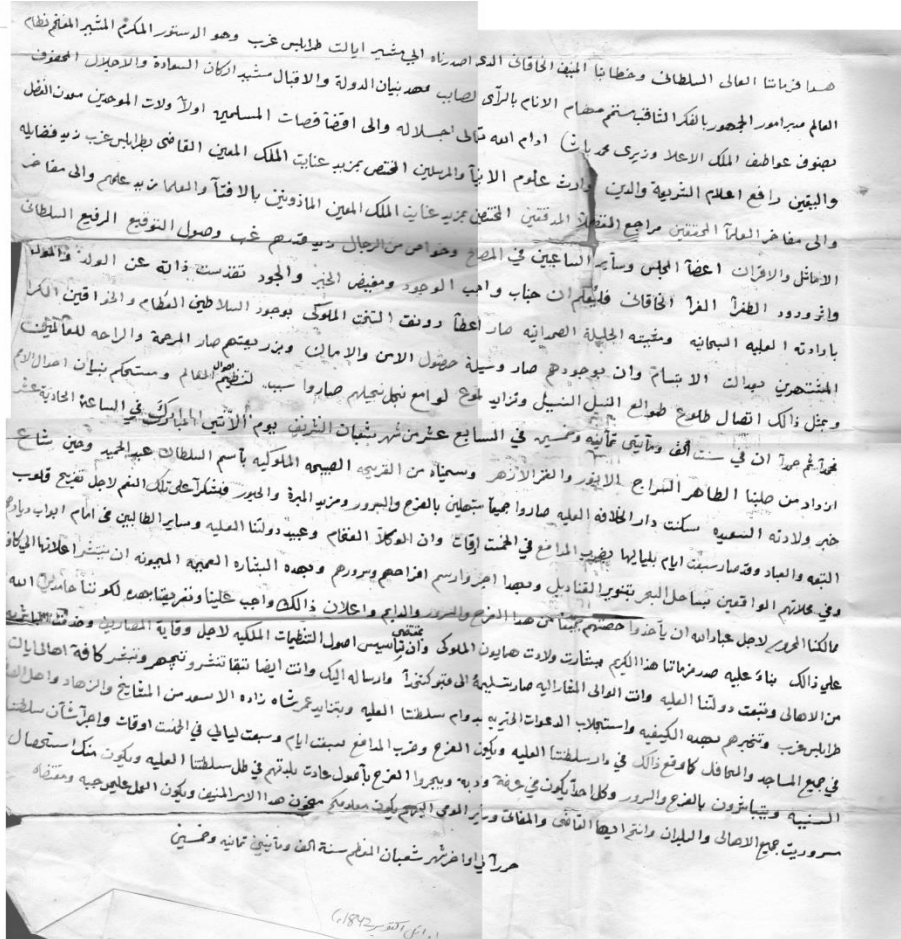 هذا فرماننا العالى السلطانى وخطابنا المنيف الخاقانى الذى اصدرناه الى مشير ايالت طرابلس غرب وهو الدستور المكرم المشير المفخم نظام
العالم مدبر امور الجمهور بالفكر الثاقب متمم مهام الانام بالرأى الصايب ممهد بنيان الدولة والاقبال مشيد اركان السعادة والاجلال المحفوف
بصنوف عواطف الملك الاعلا وزيرى محمد باشا ادام الله تعالى اجلاله والى اقضا قضات المسلمين اولا ولات الموحدين معدن الفضل
واليقين رافع اعلام الشريعة والدين وارث علوم الانبيآ والمرسلين المختص بمزيد عنايت الملك المعين القاضى بطرابلس غرب زيد فضايله
والى مفاخر العلمآ المحققين مراجع الفضلآ المدققين المختصين بمزيد عنايت الملك المعين الماذونين بالافتآ والعلما زيد علمهم والى مفاخر
الاماثل والاقران اعضآ المجلس وسأير الساعيين في المصالح وخواص من الرجال زيد قدرهم غب وصول التوقيع الرفيع السلطانى
واثر ورود الطغرآ الغرآ الخاقانى فليُعلم ان جناب واجب الوجود ومفيض الخير والجود تقدست ذاته عن الولد والمولد
بارادته العليه السبحانيه ومشيته الجليلة الصمدانيه صار اعطآ رونقت التخت الملوكى بوجود السلاطين العظام والخواقين الكرا
المشتهرين بعدالت الابتسام وان بوجودهم صار وسيلة حصول الامن والامان وبزريعتهم صار المرحمة والراحه للعالمين
وبمثل ذالك اتصال طلوع طوالع النسل النسيل وتزايد لموع لوامع نجل نجيلهم صاروا سبب لتنظيم احوال العالم ومستحكم بنيان احوال الامم
فحمدآ ثم حمدآ ان في سنت الف ومأيتى ثمانيه وخمسين في السابع عشر من شهر شعبان الشريف يوم الاثنى المبارك في الساعة الحادية عشر
ازداد من صلبنا الطاهر السراج الانور والغر الازهر وسميناه من القريحه الصبيحه الملوكيه بأسم السلطان عبد الحميد وحين شاع
خبر ولادته السعيده سكنت دار الخلافه العليه صاروا جميعآ مبتهلين بالفرح والسرور ومزيد المبرة والحبور فشكرآ على تلك النعم لاجل تفريح قلوب
التبعه والعباد وقد صار سبعت ايام بلياليها بضرب المدافع في الخمت اوقات وان الوكلآ الفخام وعبيد دولتنا العليه وساير الطالبين في امام ابواب
وفي محلاتهم الواقعين بساحل البحر بتنوير القناديل وبهدا اجرو ارسم افراحهم وسرورهم وبهده البشاره العميمه الميمونه ان ينتشر اعلانها الى كاف
ممالكنا المحروسه لاجل عبادالله ان يأخدوا حصتهم جميعآ من هدا الفرح والسرور والدايم واعلان ذالك واجب علينا وتفريقنا بهده لكوننا حامدين الله
علي ذالك بنآء عليه صدر فرماننا هذا الكريم ببشارت ولادت همايون الملوكى وان بمقتضى تأسيس اصول التنظيمات الملكيه لاجل وقاية المصارف
من الاهالى وتبعت دولتنا العليه وانت الوالى المشاراليه صارت تسليمه الى وارساله اليك وانت ايضا تنشر وتجهر وتبشر كافة اهالى ايالت
طرابلس غرب وتخبرهم بهده الكيفيه واستجلاب الدعوات الخيريه بدوام سلطنتنا العليه وبتزايد عمر شاه زاده الاسعد من المشايخ والزهاد واهل
في جميع المساجد والمحافل كما وقع ذالك في دار سلطنتنا العليه ويكون الفرح وضرب المدافع سبعت ايام وسبعت ليالي في الخمت اوقات واجرآ شأن سلطنتنا
السنيه ويتباشرون بالفرح والسرور وكل احدآ يكون في ويجروا الفرح بأصول عادت بلدتهم في ظل سلطنتنا العليه ويكون منك استحصال
سروريت جميع الاهالى والبلدان وانتم ايها القاضى والمفاتى وساير المومى اليهم يكون معلومكم مضمون هدا الامر المنيف ويكون العمل علي موجبه ومقتضاه
حررآ في اواخر شهر شعبان المعظم سنة الف ومأيتين ثمانيه وخمسين
اوائل اكتوبر 1842م